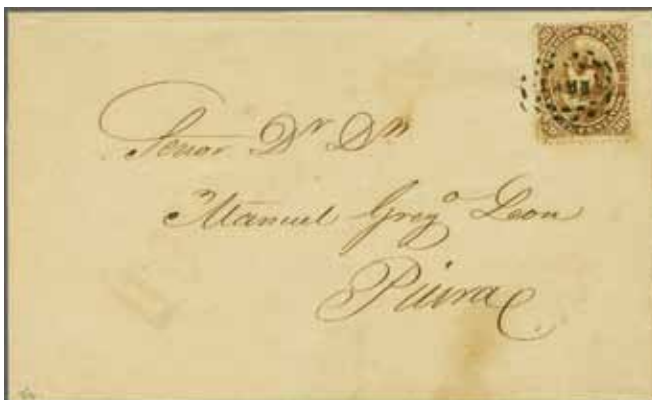 Señor Dr Dn
Manuel Grego Leon
Piura